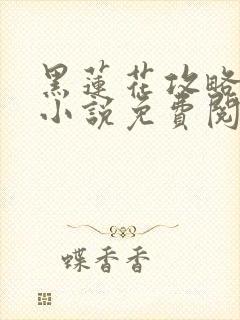 黑蓮花攻略
小說免費閱
蝶香香